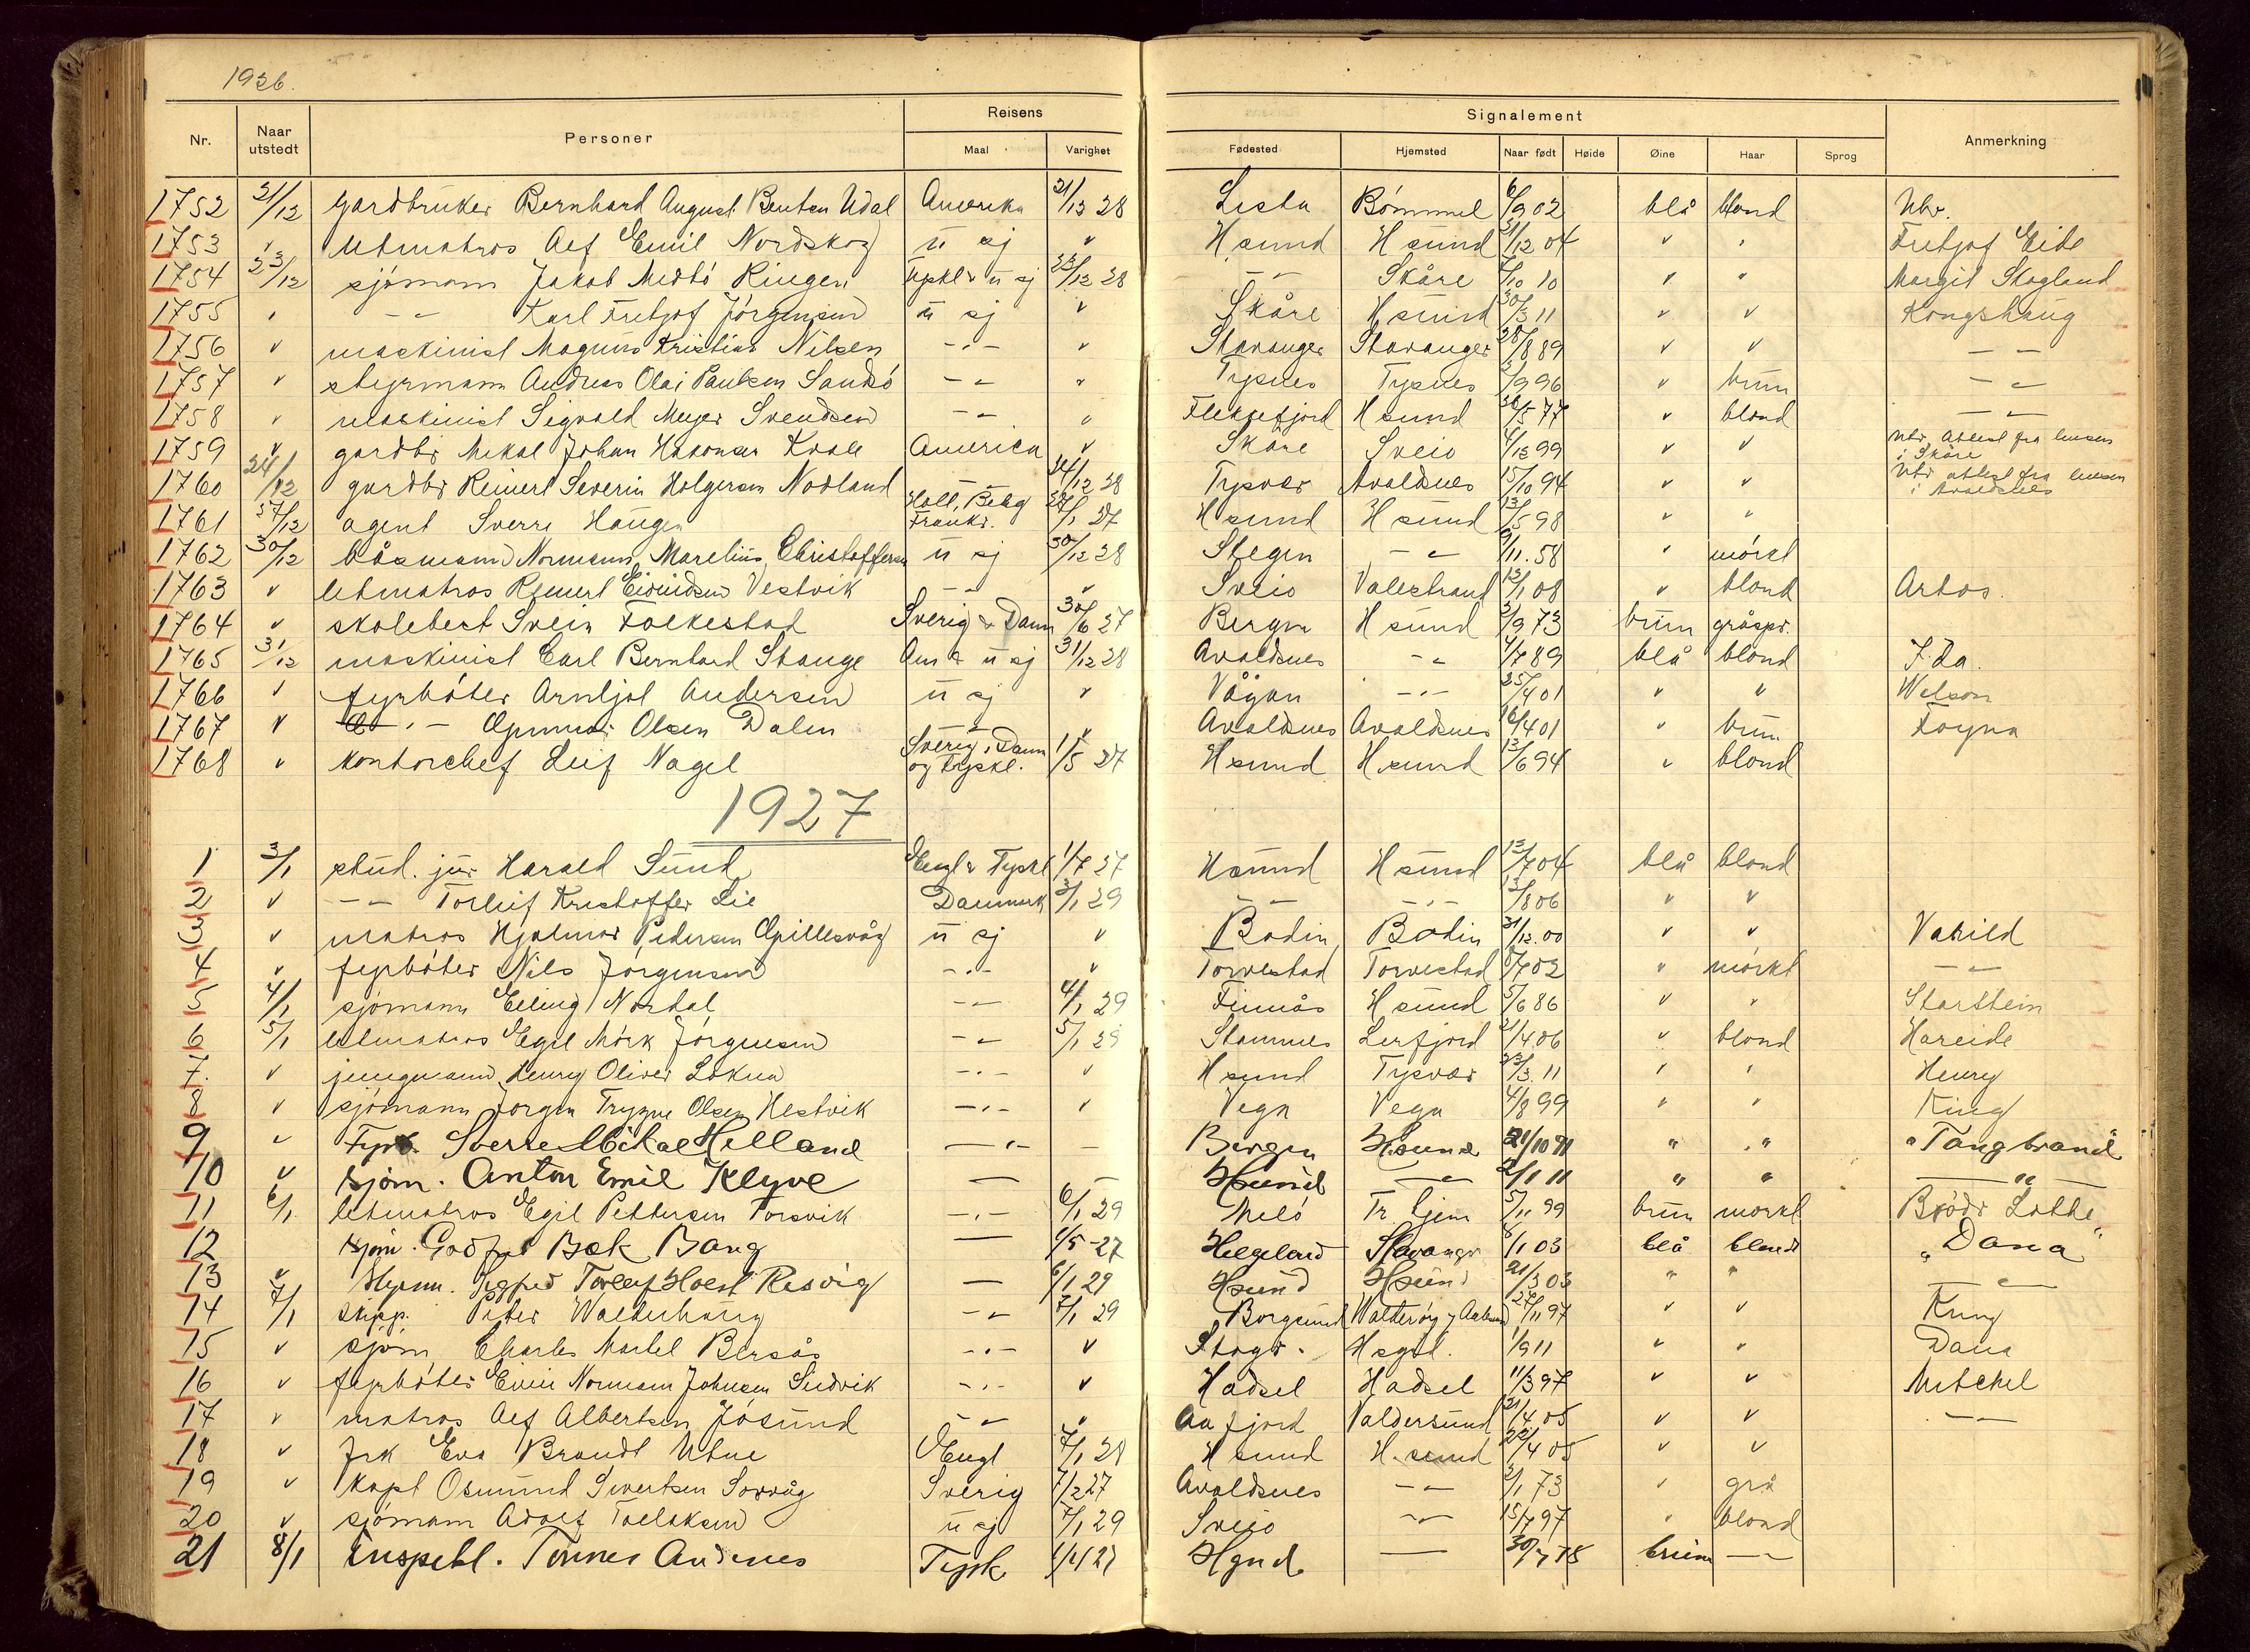 1926.
Nr. Naar utstedt Personer Reisens Maal Varighet Signalement Fødested Hjemsted Naar født Høide Øine Haar Sprog Anmerkning
1752 21/12 Gardbruker Bernhard August Bentsen Udal Amerika 21/12 28 Lista Bømmel 6/9 02 blå blond Utv.
1753 " Letmatros Alf Emil Nordskog u sj " H sund H sund 21/12 04 " " Fritjof Eide
1754 23/12 sjömann Jakob Medbö Ringen Tyskl & u sj 23/12 28 -"- Skåre /10 10 " " Margit Skogland
1755 " -"- Karl Fritjof Jörgensen u sj " Skåre H sund 30/3 11 " " Kongshaug
1756 " maskinist Magnus Kristian Nilsen -"- " Stavanger Stavanger 28/8 89 " " -"-
1757 " styrmann Andreas Olai Paulsen Sandsö -"- " Tysnes Tysnes /9 96 " brun -"-
1758 " maskinist Sigvald Meyer Svendsen -"- " Flekkefjord H sund /5 77 " blond -"-
1759 " gardbr Mikal Johan Hakonsen Kvale America " Skåre Sveio 4/12 99 " " Utv. Attest fra lensm i Skåre
1760 24/12 gardbr Reinert Severin Holgersen Nodland -"- 24/12 28 Tysvær Avaldsnes 15/10 94 " " Utv attest fra lensm i Avaldsnes
1761 27/12 agent Sverre Haugen Holl, Belg Frankr. 27/1 27 H sund H sund 13/5 98 " "
1762 30/12 båsmann Normann Marelius Christoffersen u sj 30/12 28 Stegen -"- 9/11. 58 " mörkt
1763 " Letmatros Reinert Eivindsen Vestvik -"- " Sveio Valestrand 12/1 08 " blond Artos.
1764 " skolebest Svein Folkestad Sverig & Danm 30/6 27 Bergen H sund 3/9 73 brun gråspr.
1765 31/12 maskinist Carl Bernhard Stange Am & u sj 31/12 28 Avaldsnes -"- 4/7 89 blå blond Ida.
1766 " fyrböter Arnljot Andersen u sj " Vågan -"- 25/4 01 " " Wilson
1767 " -"- Gunnar Olsen Dalen -"- " Avaldsnes Avaldsnes 16/4 01 " brun Fogna
1768 " kontorchef Leif Nagel Sverig, Danm og Tyskl. 1/5 27 H sund H. sund 13/6 94 " blond
1927
1 3/1 stud. jur Harald Sund Engl & Tyskl 1/7 27 H sund H sund 13/7 04 blå blond
2 " -"- Torleif Kristoffer Lie Danmark 3/1 29 -"- -"- 13/8 06 " "
3 " matros Hjalmar Pedersen Gpillesvåg u sj " Bodin Bodin 31/12. 00 " " Vatild
4 " fyrböter Nils Jörgensen -"- " Torvestad Torvestad /7 02 " mörkt -"-
5 4/1 sjömann Elling Nordal -"- 4/1 29 Finnås H sund 5/6 86 " " Starstein
6 5/1 Letmatros Egil Mörk Jörgensen -"- 5/1 29 Stamnes Lerfjord 21/4 06 " blond Hareide
7. " jungmann Henry Oliver Lokna -"- " H sund Tysvær 23/3. 11 " " Henry
8 " sjömann Jörgen Trygve Olsen Hestvik -"- " Vega Vega 4/8 99 " " King
9 " Fyrb. Sverre Mikal Helland -"- - Bergen H.sund 21/10 91 " " "Tangbrand"
10 " sjöm. Anton Emil Klyve - - H sund -"- 2/1 11 " " -"-
11 6/1 letmatros Egil Pettersen Torsvik -"- 6/1 29 Melö Tr hjem 5/11 99 brun mörkt Brödr Lothe
12 sjöm. Godfred Bæk Bang - 6/5 -27 Helgeland Stavanger 8/1 03 blå blondt "Dana"
13 " Styrm. Sigfred Torleif Holst Risvig - 6/1 29 H sund H sund 21/3 03 " " -"-
14 7/1 skipp. Peter Walderhaug -"- 7/1 29 Borgsund Walderöy, Aalesund 27/11 97 " " King
15 " sjöm Charles Martel Bersås -"- " Stagr. Hsgd. 1/9 11 " " Dana
16 " fyrböter Einar Normann Johnsen Sudvik -"- " Hadsel Hadsel 11/3 97 " " Mitchel
17 " matros Alf Albertsen Jösund -"- " Aafjord Valdersund 21/4 05 " " -"-
18 " Frk Eva Brandt Utne Engl 7/1 28 H sund H. sund 22/4 05 " "
19 " kapt Osmund Sivertsen Sovvåg Sverig 7/2 27 Avaldsnes -"- 3/1 73 " grå
20 " sjömann Adolf Toelsksen u sj 7/1 29 Sveio -"- 15/7 97 " blond
21 8/1 Inspekt. Tönnes Andenes Tysk 1/4 27 Hgnd. - 30/7 78 brun -"-